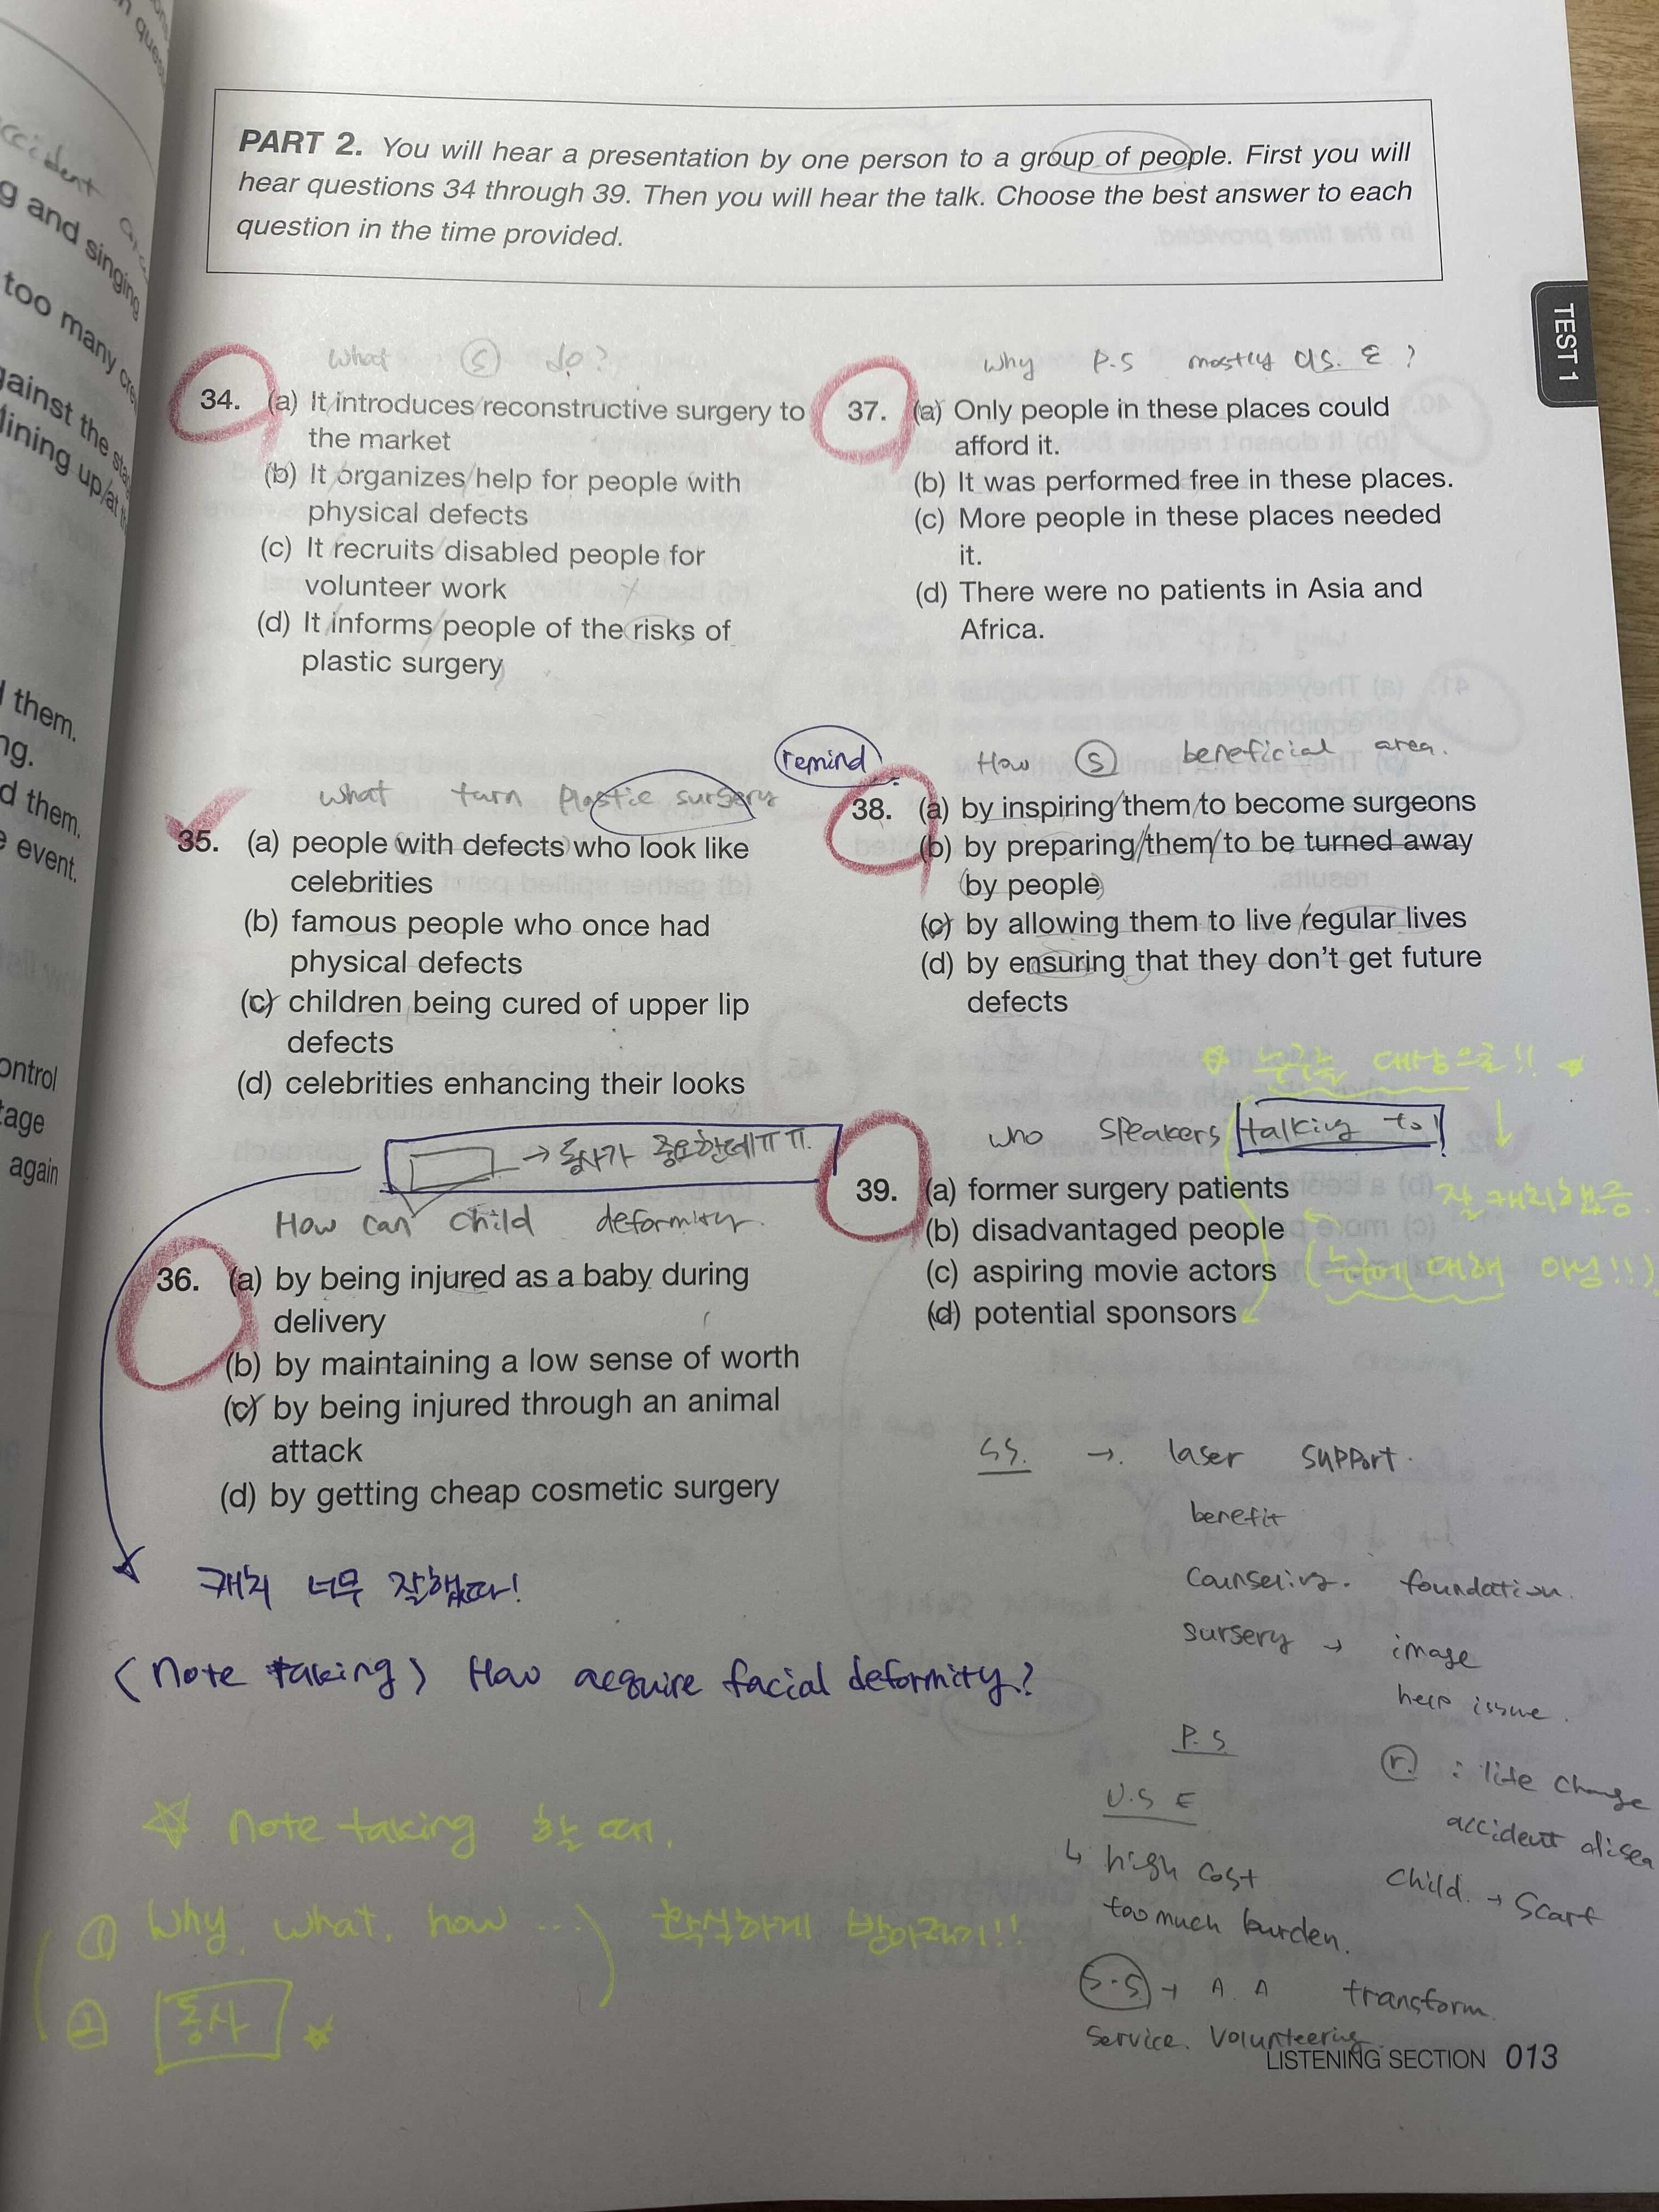 PART 2. You will hear a presentation by one person to a group of people. First you will
hear questions 34 through 39. Then you will hear the talk. Choose the best answer to each
question in the time provided.
TEST 1
What Ⓢ do?
34. (a) It introduces reconstructive surgery to
the market
(b) It organizes help for people with
physical defects
(c) It recruits disabled people for
volunteer work
(d) It informs people of the risks of
plastic surgery
what turn plastic surgery
remind
35. (a) people with defects who look like
celebrities
(b) famous people who once had
physical defects
(c) children being cured of upper lip
defects
(d) celebrities enhancing their looks
→ 동사가 중요한데ㅠㅠ.
How can child deformity.
36. (a) by being injured as a baby during
delivery
(b) by maintaining a low sense of worth
(c) by being injured through an animal
attack
(d) by getting cheap cosmetic surgery
캐치 너무 잘했따!
(Note taking) How acquire facial deformity?
☆ Note taking 할 때,
① Why, what, how ...) 확실하게 받아적기!!
② 동사 ☆
why P.S mostly US. E ?
37. (a) Only people in these places could
afford it.
(b) It was performed free in these places.
(c) More people in these places needed
it.
(d) There were no patients in Asia and
Africa.
How Ⓢ beneficial area.
38. (a) by inspiring them to become surgeons
(b) by preparing them to be turned away
by people
(c) by allowing them to live regular lives
(d) by ensuring that they don't get future
defects
☆ 누구를 대상으로!! ☆
who speakers talking to!
39. (a) former surgery patients
잘 캐치했음
(b) disadvantaged people
(c) aspiring movie actors
(누구에 대해 아님!!)
(d) potential sponsors
SS. → laser support.
benefit
foundation.
surgery → image
help issue.
P.S.
ⓡ : life change
U.S E
accident
↳ high cost
child. → Scarf
too much burden.
S.S → A. A transform
service. Volunteering
LISTENING SECTION 013
g and singing
too many
gainst the
lining up/at
them.
ng.
d them.
event.
again